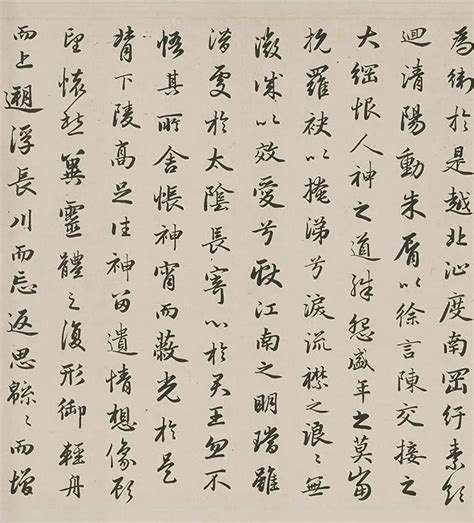 為衛於是越北沚度南岡紆素領
迴清陽動朱脣以徐言陳交接之
大綱恨人神之道殊怨盛年之莫當
抗羅袂以掩涕兮淚流襟之浪〻無
微誠以效愛兮獻江南之明璫雖
潛處於太陰長寄心於君王忽不
悟其所舍悵神宵而蔽光於是
背下陵高足往神留遺情想像顧
望懷愁冀靈體之復形御輕舟
而上遡浮長川而忘返思緜〻而增